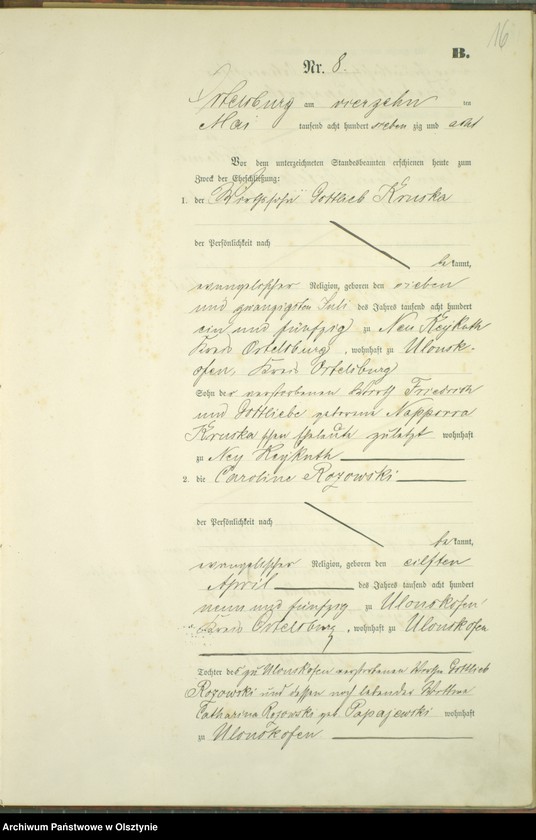 16
B.
Nr. 8.
Ortelsburg am vierzehn ten
Mai tausend acht hundert siebenzig und acht
Vor dem unterzeichneten Standesbeamten erschienen heute zum
Zweck der Eheschließung:
1. der Wirthssohn Gottlieb Kruska
der Persönlichkeit nach
be kannt,
evangelischer Religion, geboren den sieben
und zwanzigsten Juli des Jahres tausend acht hundert
ein und fünfzig zu Neu Keykuth
Kreis Ortelsburg, wohnhaft zu Ulonsk-
ofen, Kreis Ortelsburg
Sohn der verstorbenen Friedrich
und Gottliebe geborene Napporra
Kruska schen Eheleute zuletzt wohnhaft
zu Ney Keykuth
2. die Caroline Rozowski
der Persönlichkeit nach
be kannt,
evangelischer Religion, geboren den eilften
April des Jahres tausend acht hundert
neun und fünfzig zu Ulonskofen
Kreis Ortelsburg, wohnhaft zu Ulonskofen
Tochter des zu Ulonskofen verstorbenen Gottlieb
Rozowski und dessen noch lebender Wittwe
Catharina Rozowski geb. Papajewski wohnhaft
zu Ulonskofen
Archiwum Państwowe w Olsztynie